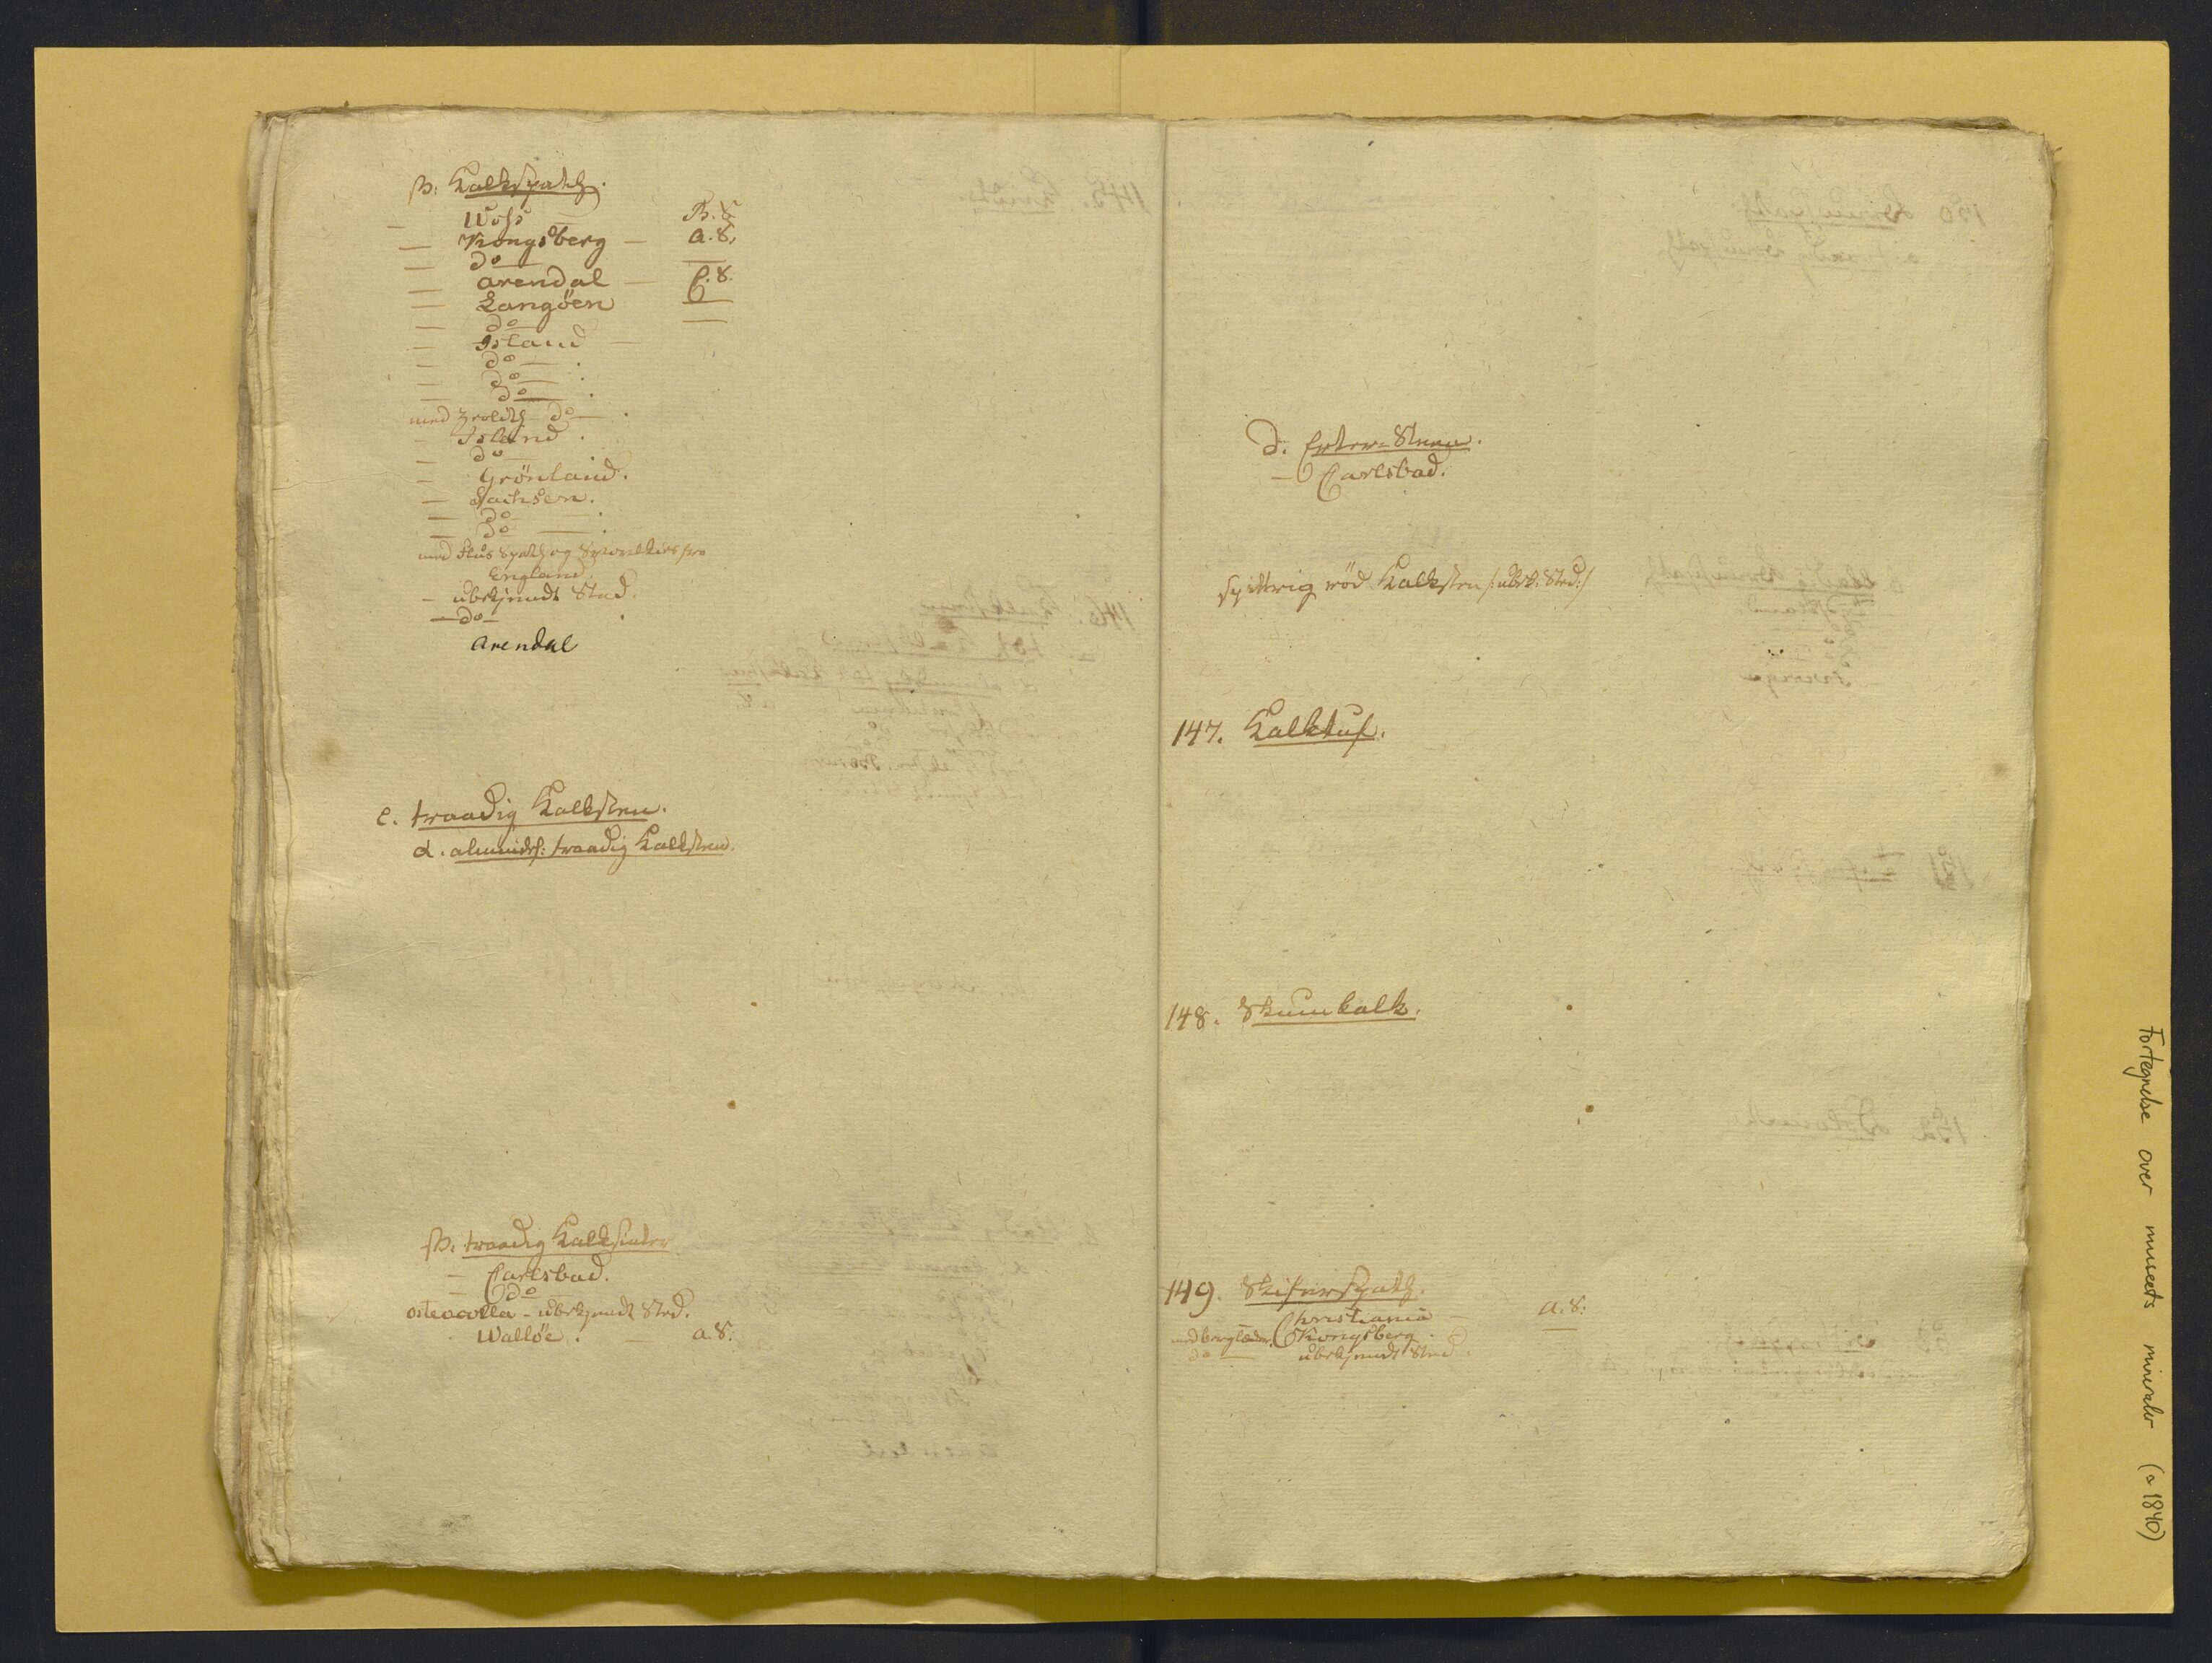 β. Kalkspath.
— Woss — B. 8
— Kongsberg — a. 8.
— do —
— Arendal — C. 8.
— Langöen —
— do —
— Island —
— do — .
— do — .
— do — .
med Zeolith do — .
— Island .
— do —
— Grönland.
— Sachsen.
— do — .
— do — .
med Flus Spath og Svovelkies fra
England.
— ubekjendt Sted.
— do — .
Arendal
c. traadig Kalksten.
α. almindel: traadig Kalksten.
β. traadig Kalksinter
— Carlsbad.
— do
osteocolla — ubekjendt Sted.
Wallöe. — a. 8.
d. Erter-Steen.
— Carlsbad.
splittrig röd Kalksten /: ubek: Sted :/
147. Kalktuf.
148. Skumkalk.
149. Skiferspath.
Christiania — a. 8.
med berglæder. Kongsberg. —
do — ubekjendt Sted.
Fortegnelse over museets mineraler (a 1840)